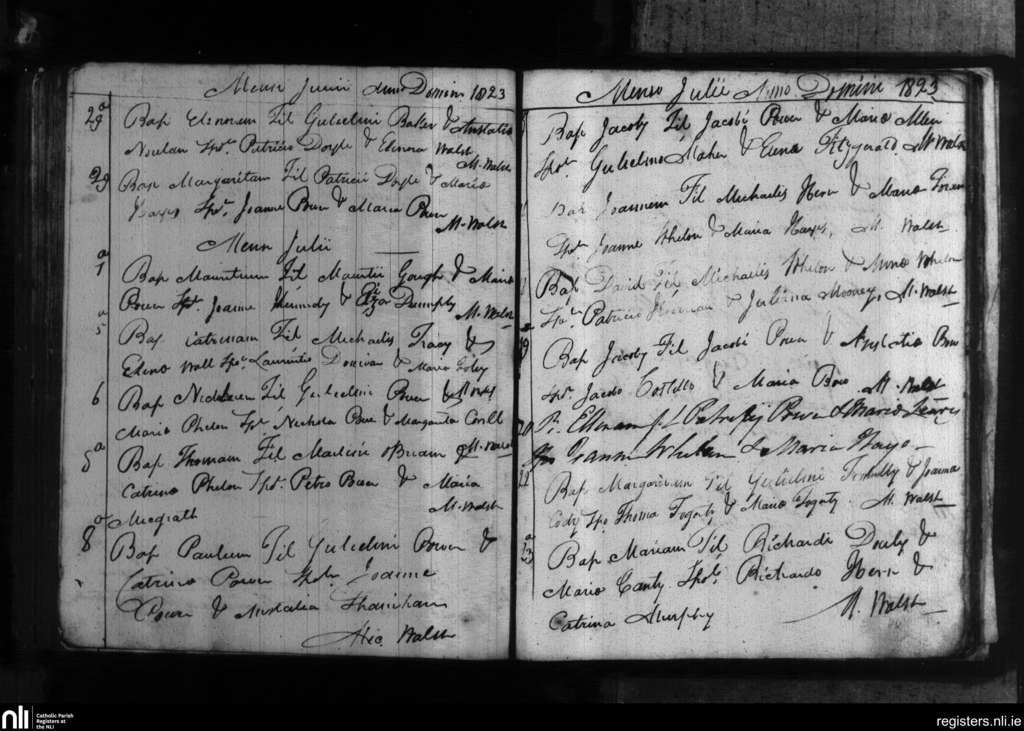 Mense Junii Anno Domini 1823
29 Bap Elenoram Fil Gulielmi Baker & Anstatia
Noulan Spr. Patricio Doyle & Elenora Walsh
M. Walsh
29 Bap Margaritam Fil Patricii Doyle & Maria
Hayes Spr. Joanne Power & Maria Power
M. Walsh
Mense Julii
1 Bap Mauritium Fil Mauritii Gough & Maria
Power Spr. Joanne Kennedy & Eliza Dumphy M. Walsh
5 Bap Catrinam Fil Michaelis Tracy &
Elena Wall Spr. Laurentio Donivan & Maria Foley
6 Bap Nicholaum Fil Gulielmi Power &
Maria Phelan Spr. Nichola Power & Margarita
5 Bap Thomam Fil Martini OBrien & M. Walsh
Catrina Phelan Spr. Petro Power & Maria
M. Walsh
Mcgrath
8 Bap Paulum Fil Gulielmi Power &
Catrina Power Spr. Joanne
Power & Anstatia Shanahan
Mic. Walsh
Mense Julii Anno Domini 1823
Bap Jacoby Fil Jacobi Power & Maria Allen
Spr. Gulielmo Maher & Elena Fitzgerald M. Walsh
Bap Joannem Fil Michaelis Hern & Maria
Spr. Joanne Whelan & Maria Hayes, M. Walsh
Bap David Fil Michaelis Whelan & Anna Whelan
Spr. Patricio & Juliana Mooney M. Walsh
19 Bap Jacoby Fil Jacobi Power & Anstatia Power
Spr. Jacobo Costello & Maria Power M. Walsh
20 Ellenam fil Patricii Power & Maria
Joanne Whelan & Maria Hayes
22 Bap Margaritam Fil Gulielmi & Joanna
Cody Spr. Thoma Fogarty & Maria Fogarty M. Walsh
23 Bap Mariam Fil Richardi Dooly &
Maria Canty Spr. Richardo Hern &
Catrina Murphy
M. Walsh
nli
Catholic Parish
Registers at
the NLI
registers.nli.ie